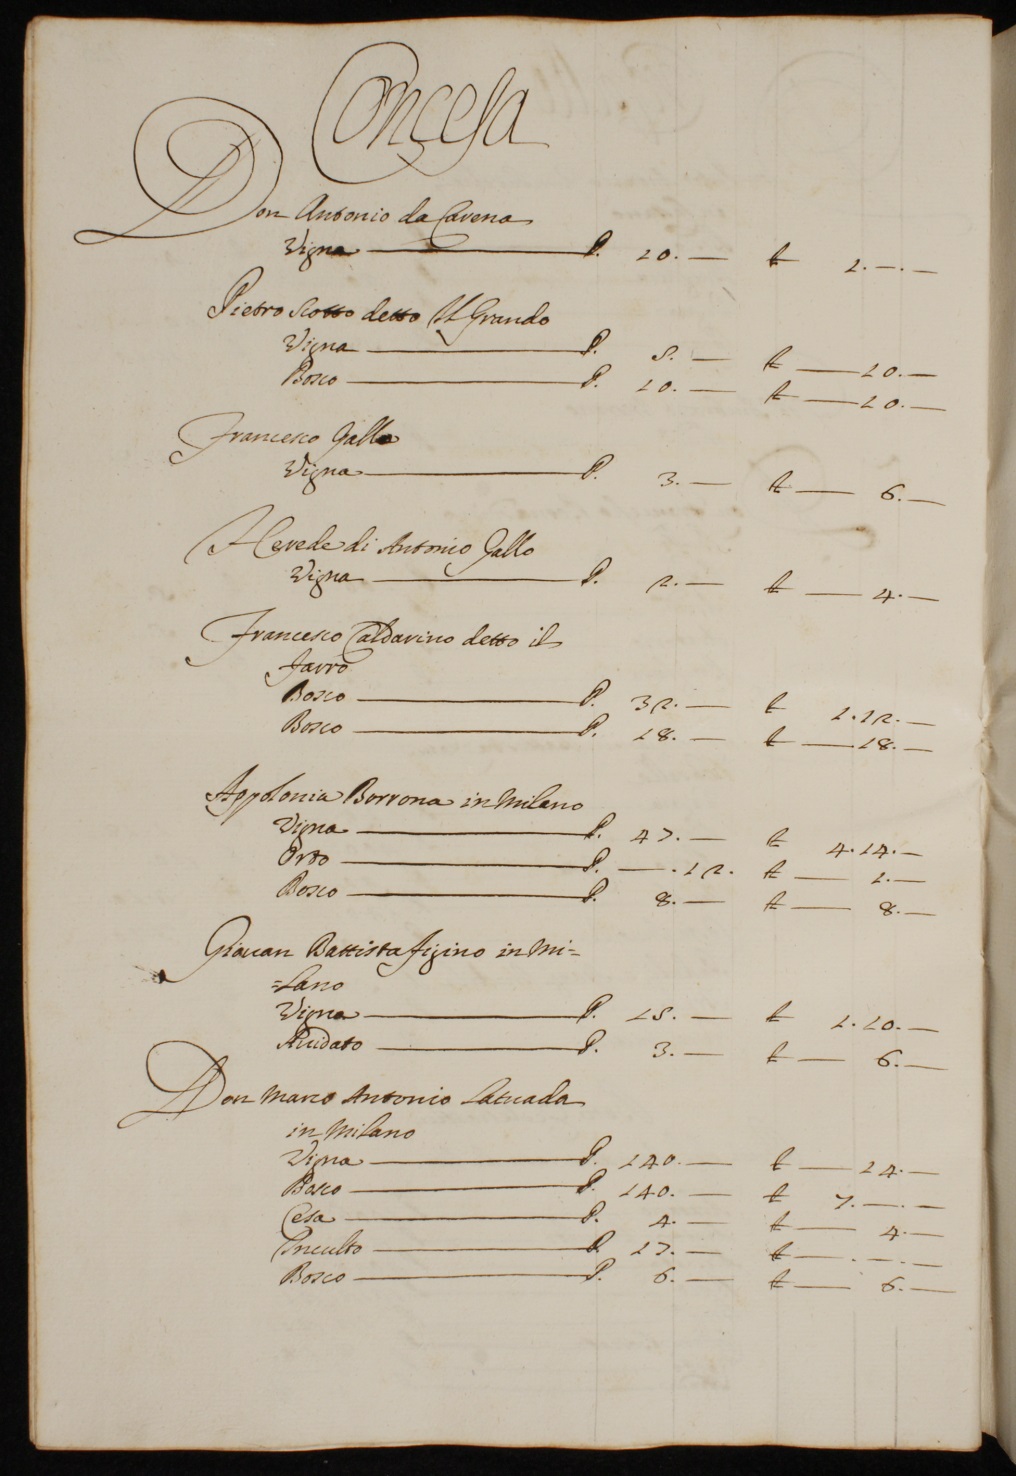 Concesa
Don Antonio da Cavena
Vigna — P. 10. — £ 1. — . —
Pietro Scotto detto Il Grando
Vigna — P. 5. — £ — 10. —
Bosco — P. 10. — £ — 10. —
Francesco Gallo
Vigna — P. 3. — £ — 6. —
Herede di Antonio Gallo
Vigna — P. 2. — £ — 4. —
Francesco Caldarino detto il
favrò
Bosco — P. 32. — £ 1. 12. —
Bosco — P. 18. — £ — 18. —
Appolonia Borrona in Milano
Vigna — P. 47. — £ 4. 14. —
Orto — P. — . 12. £ — 1. —
Bosco — P. 8. — £ — 8. —
Giouan Battista figino in Mi=
=lano
Vigna — P. 15. — £ 1. 10. —
Auidato — P. 3. — £ — 6. —
Don Marco Antonio Latuada
in Milano
Vigna — P. 140. — £ — 14. —
Bosco — P. 140. — £ 7. — . —
Cesa — P. 4. — £ — 4. —
Inculto — P. 17. — £ — . — . —
Bosco — P. 6. — £ — 6. —